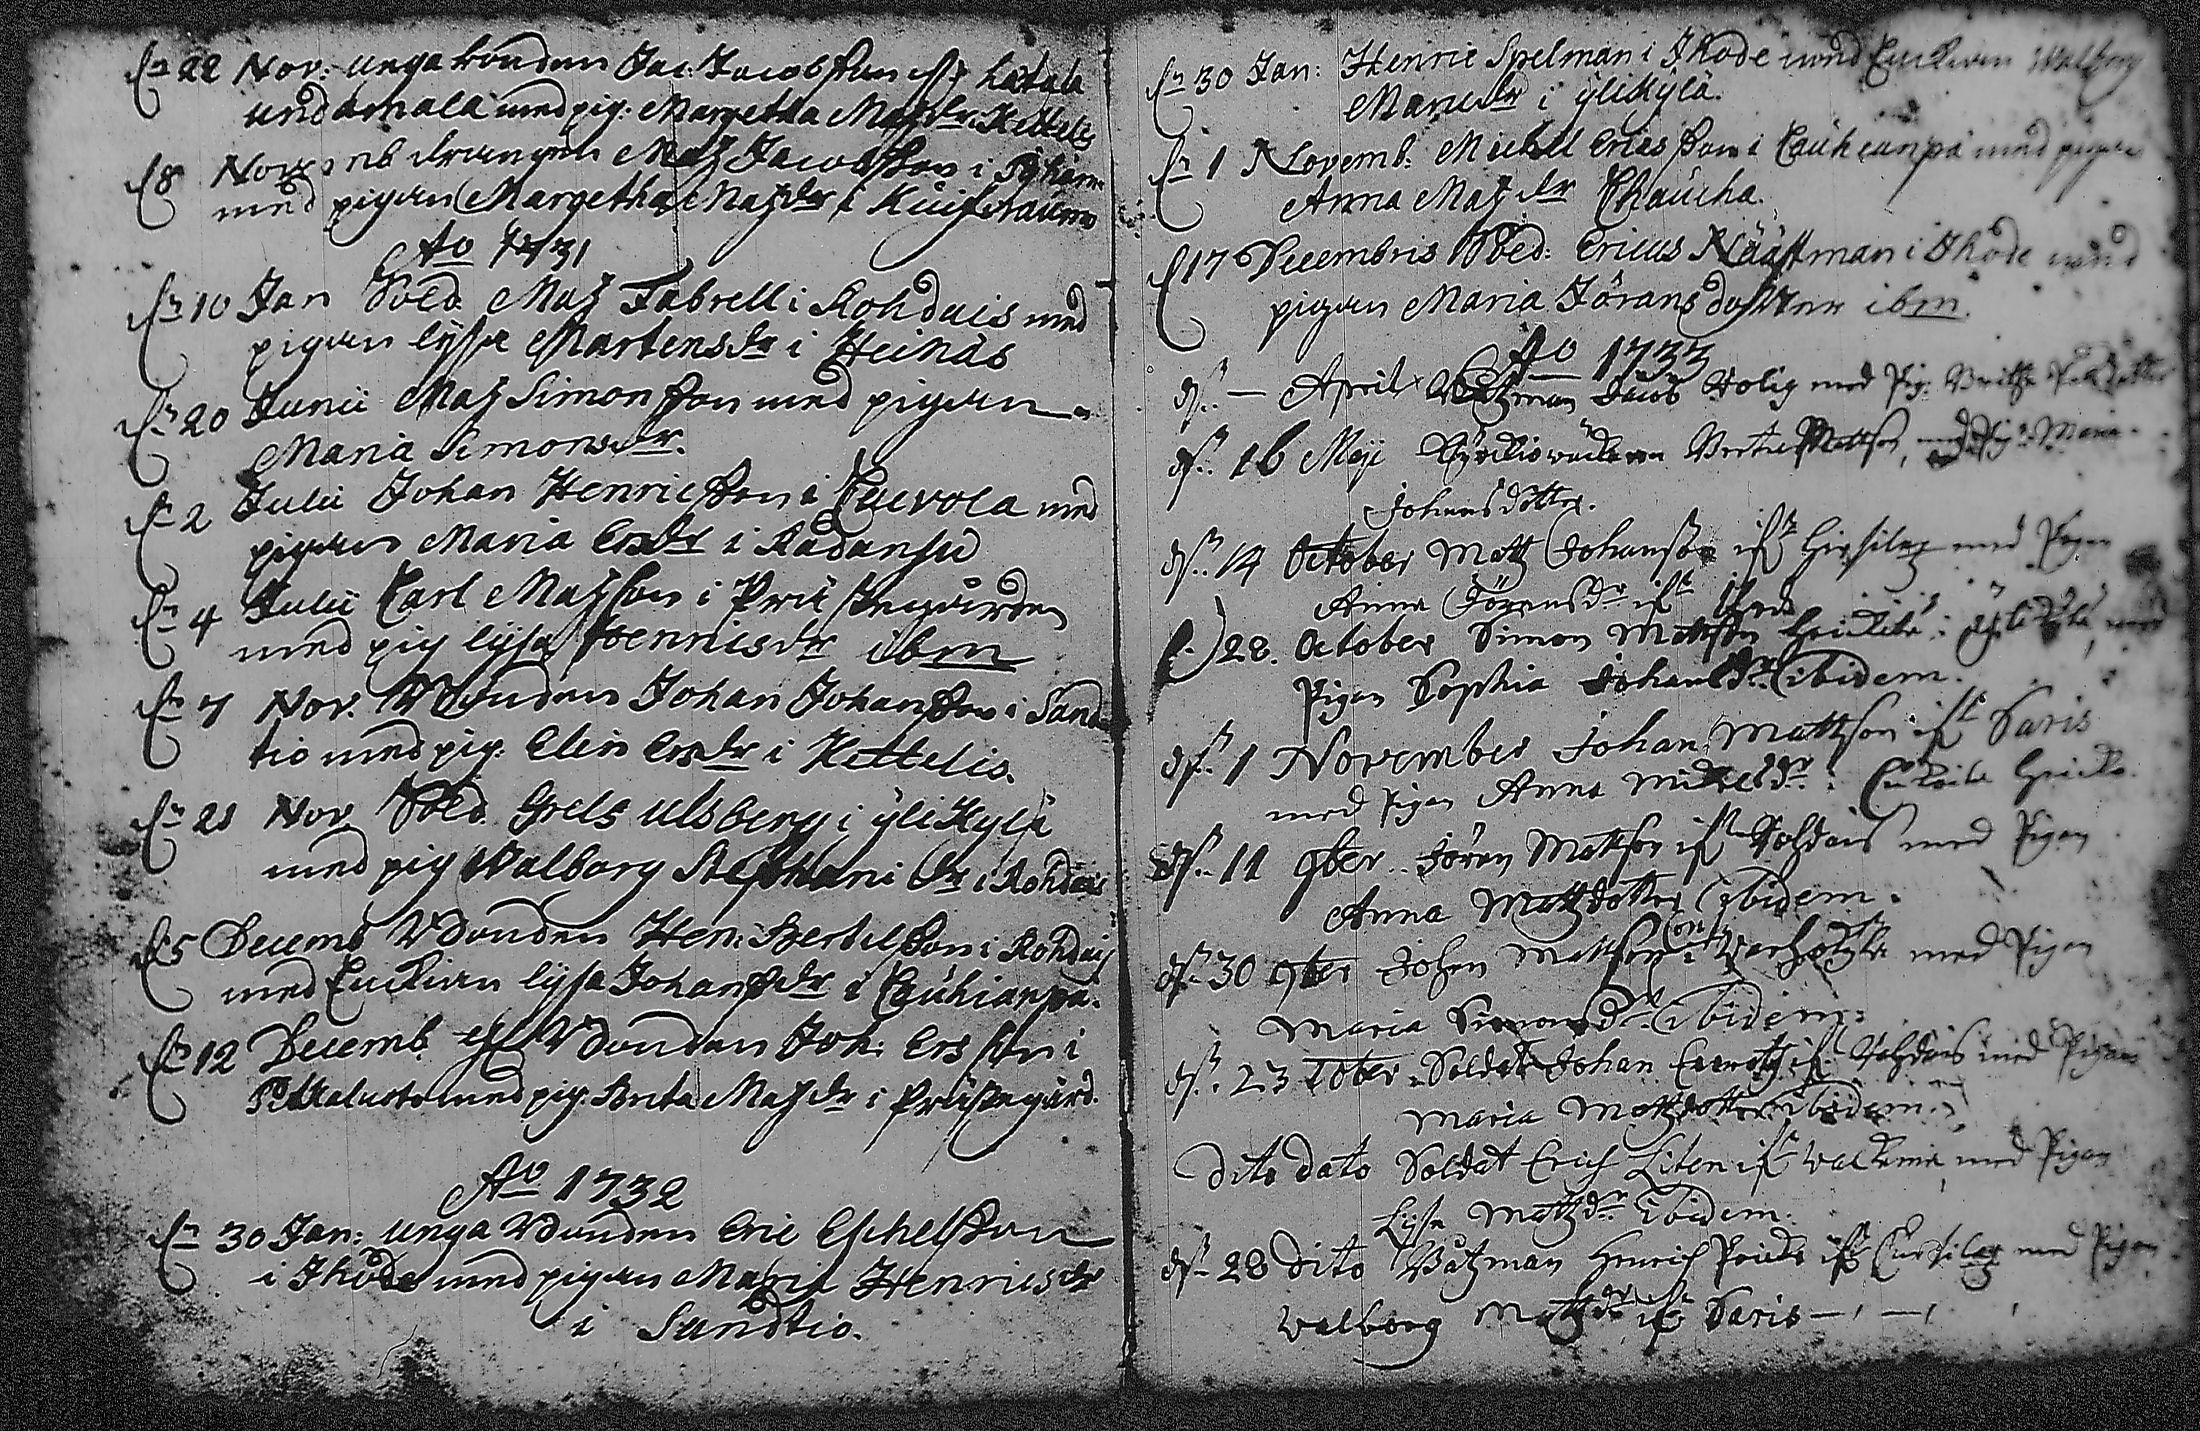 d. 22 Nov: unga bonden Jac: Jacobsson fr. Latala
med pig: Margetha Matzdr. Kettelis
d. 8 Novemb drengen Matz Jacobsson i
med pigan Margetha Matzdr i
Ao 1731
dn 10 Jan Sold. Matz Tabrell i Rohdais med
pigan Lysa Martensdr i Heinäs
dn 20 Junii Matz Simonsson med pigan
Maria Simonsdr.
dn 2 Julii Johan Henricsson i Cuevola med
pigan Maria Ersdr i Radansu
dn 4 Julii Carl Matzson i Prästegården
med pig Lysa Hennicsdr ibm
dn 7 Nov. Bonden Johan Johansson i Sand
tio med pig: Elin Ersdr i Kettelis.
dn 21 Nov Sold. Grels Ulsberg i ÿlikylä
med pig Walborg Stephani dr i Rohdais
d. 5 Decemb Bonden Hen: Bertilsson i Rohdais
med Enckian Lysa Johansdr i Cauhianpä.
dn 12 Decemb Bonden Joh: Ersson i
med pig Brita Matzdr i Prästegård.
Ao 1732
dn 30 Jan: unga Bonden Eric Eschelsson
i Ihode med pigan Maria Henricsdr
i Sandtio.
dn 30 Jan: Henric Spelman i Ihode med Enckian Walborg
Marcusdr i ÿlikÿlä.
dn 1 Novemb: Michell Ericsson i Cauhianpä med pigan
Anna Matzdr Chaucha.
d 17 Decembris Sold: Ericus Näästman i Ihode med
pigan Maria Jöransdotter ibm.
Ao 1733
d. — April Båtzman Jacob Rolig med Pig:
d. 16 Maji Mattson, med Pig: Maria
Johansdotter.
d. 14 October Matz Johansson ifr Hirsilax med Pigan
Anna Jöransdr ifr Ihode
d. 28. October Simon Mattson i med
Pigan Sophia Johansdr. ibidem.
d. 1 November Johan Mattson ifr Saris
med Pigan Anna Mickelsdr:
d. 11 9ber Jöran Mattson ifr Rohdais med Pigan
Anna Matzdotter ibidem.
d. 30 9ber Johan Mattson i med Pigan
Maria Simonsdr. ibidem.
d. 23 Xber Soldat Johan ifr Rohdais med Pigan
Maria Matzdotter ibidem.
dito dato Soldat Erich Liten ifr Walkema med Pigan
Lysa Matzdr ibidem.
d. 28 dito Båtzman Henrich ifr med Pigan
Walborg Matzdr ifr Saris